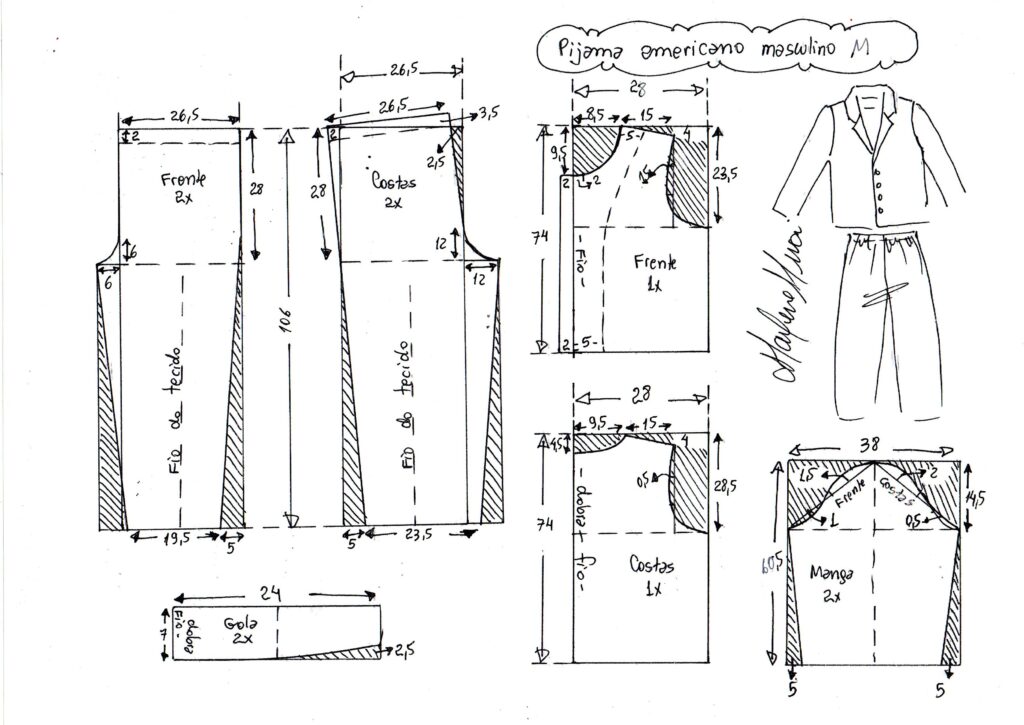 Pijama americano masculino M
26,5
2
Frente
2x
28
6
6
Fio do tecido
19,5
5
106
26,5
26,5
3,5
2
2,5
28
Costas
2x
12
12
Fio do tecido
5
23,5
24
7
Fio-
dobra
Gola
2x
2,5
28
8,5
15
-5-
4
9,5
2
2
23,5
74
-Fio-
Frente
1x
2
-5-
28
9,5
15
4
4,5
0,5
28,5
74
-dobra+fio-
Costas
1x
Marlene Mukai
38
1,5
2
Frente
Costas
14,5
1
0,5
60,5
Manga
2x
5
5